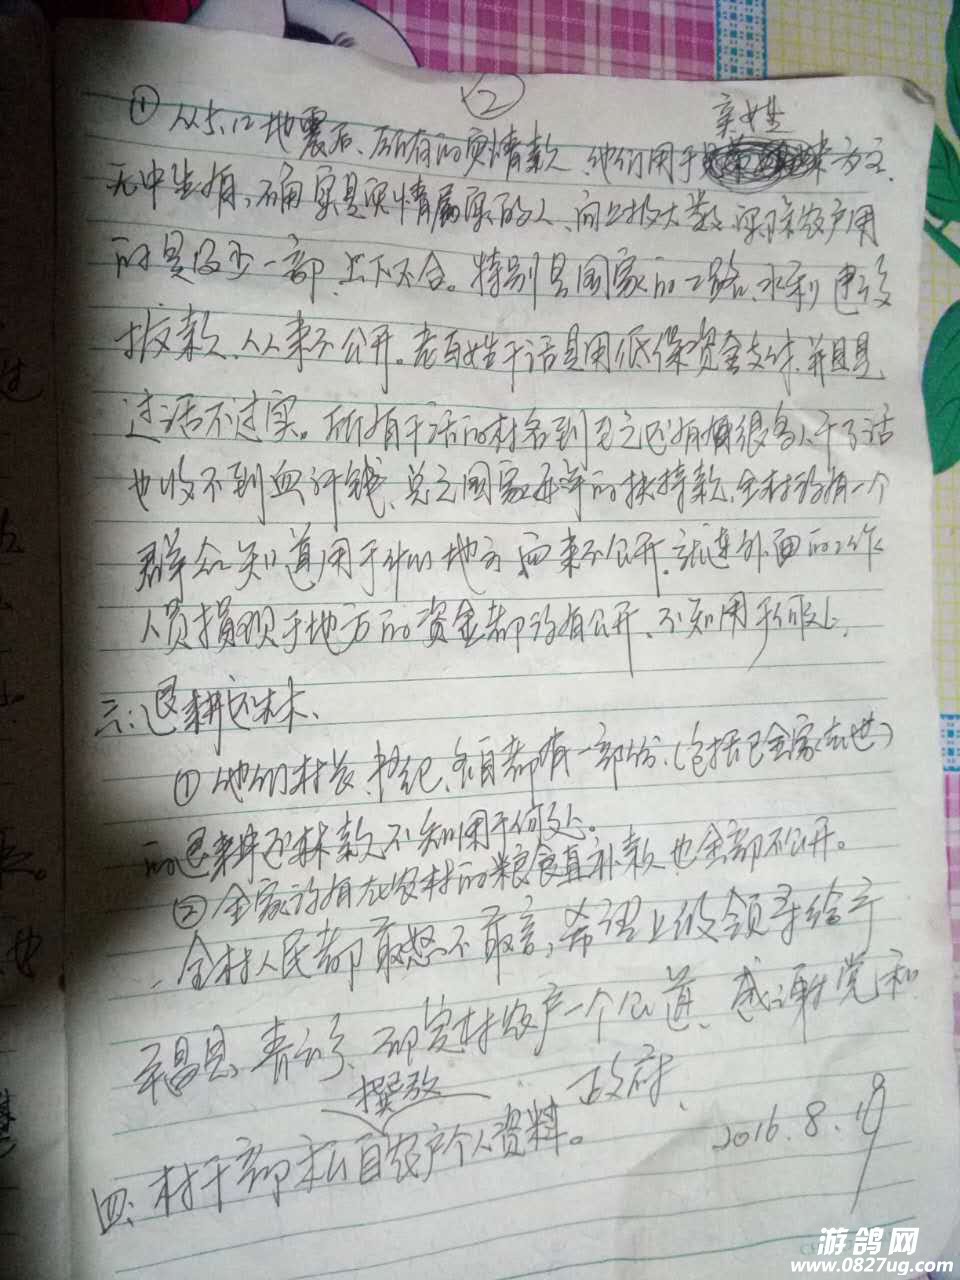 ②
亲姓
① 从5.12地震后、所有的灾情款、他们用于为主.
无中生有,确实是灾情属实的人、向上报大数,实际农户用
的是极少一部,上下不合。特别是国家的公路、水利建设
拨款、从来不公开。老百姓干活是用低保资金支付、并且是
过活不过实。所有干活的村名到至之还有很多人干了活
也收不到血汗钱、总之国家每年的扶持款,全村没有一个
群众知道用于什么地方 而来不公开.就连外面的工作
人员捐现于地方的资金都没有公开、不知用于何处.
三:退耕还林、
① 他们村长、书纪、各自都有一部份.(包括已全家去世)
的退耕还林款不知用于何处。
② 全家没有在农村的粮食直补款也全部不公开。
全村人民都敢怒不敢言,希望上级领导给予
平昌县、青云乡、村农户一个公道、感谢党和
政府、
撰改
四:村干部私自农户个人资料。
2016.8.19
游鸽网
www.0827ug.com